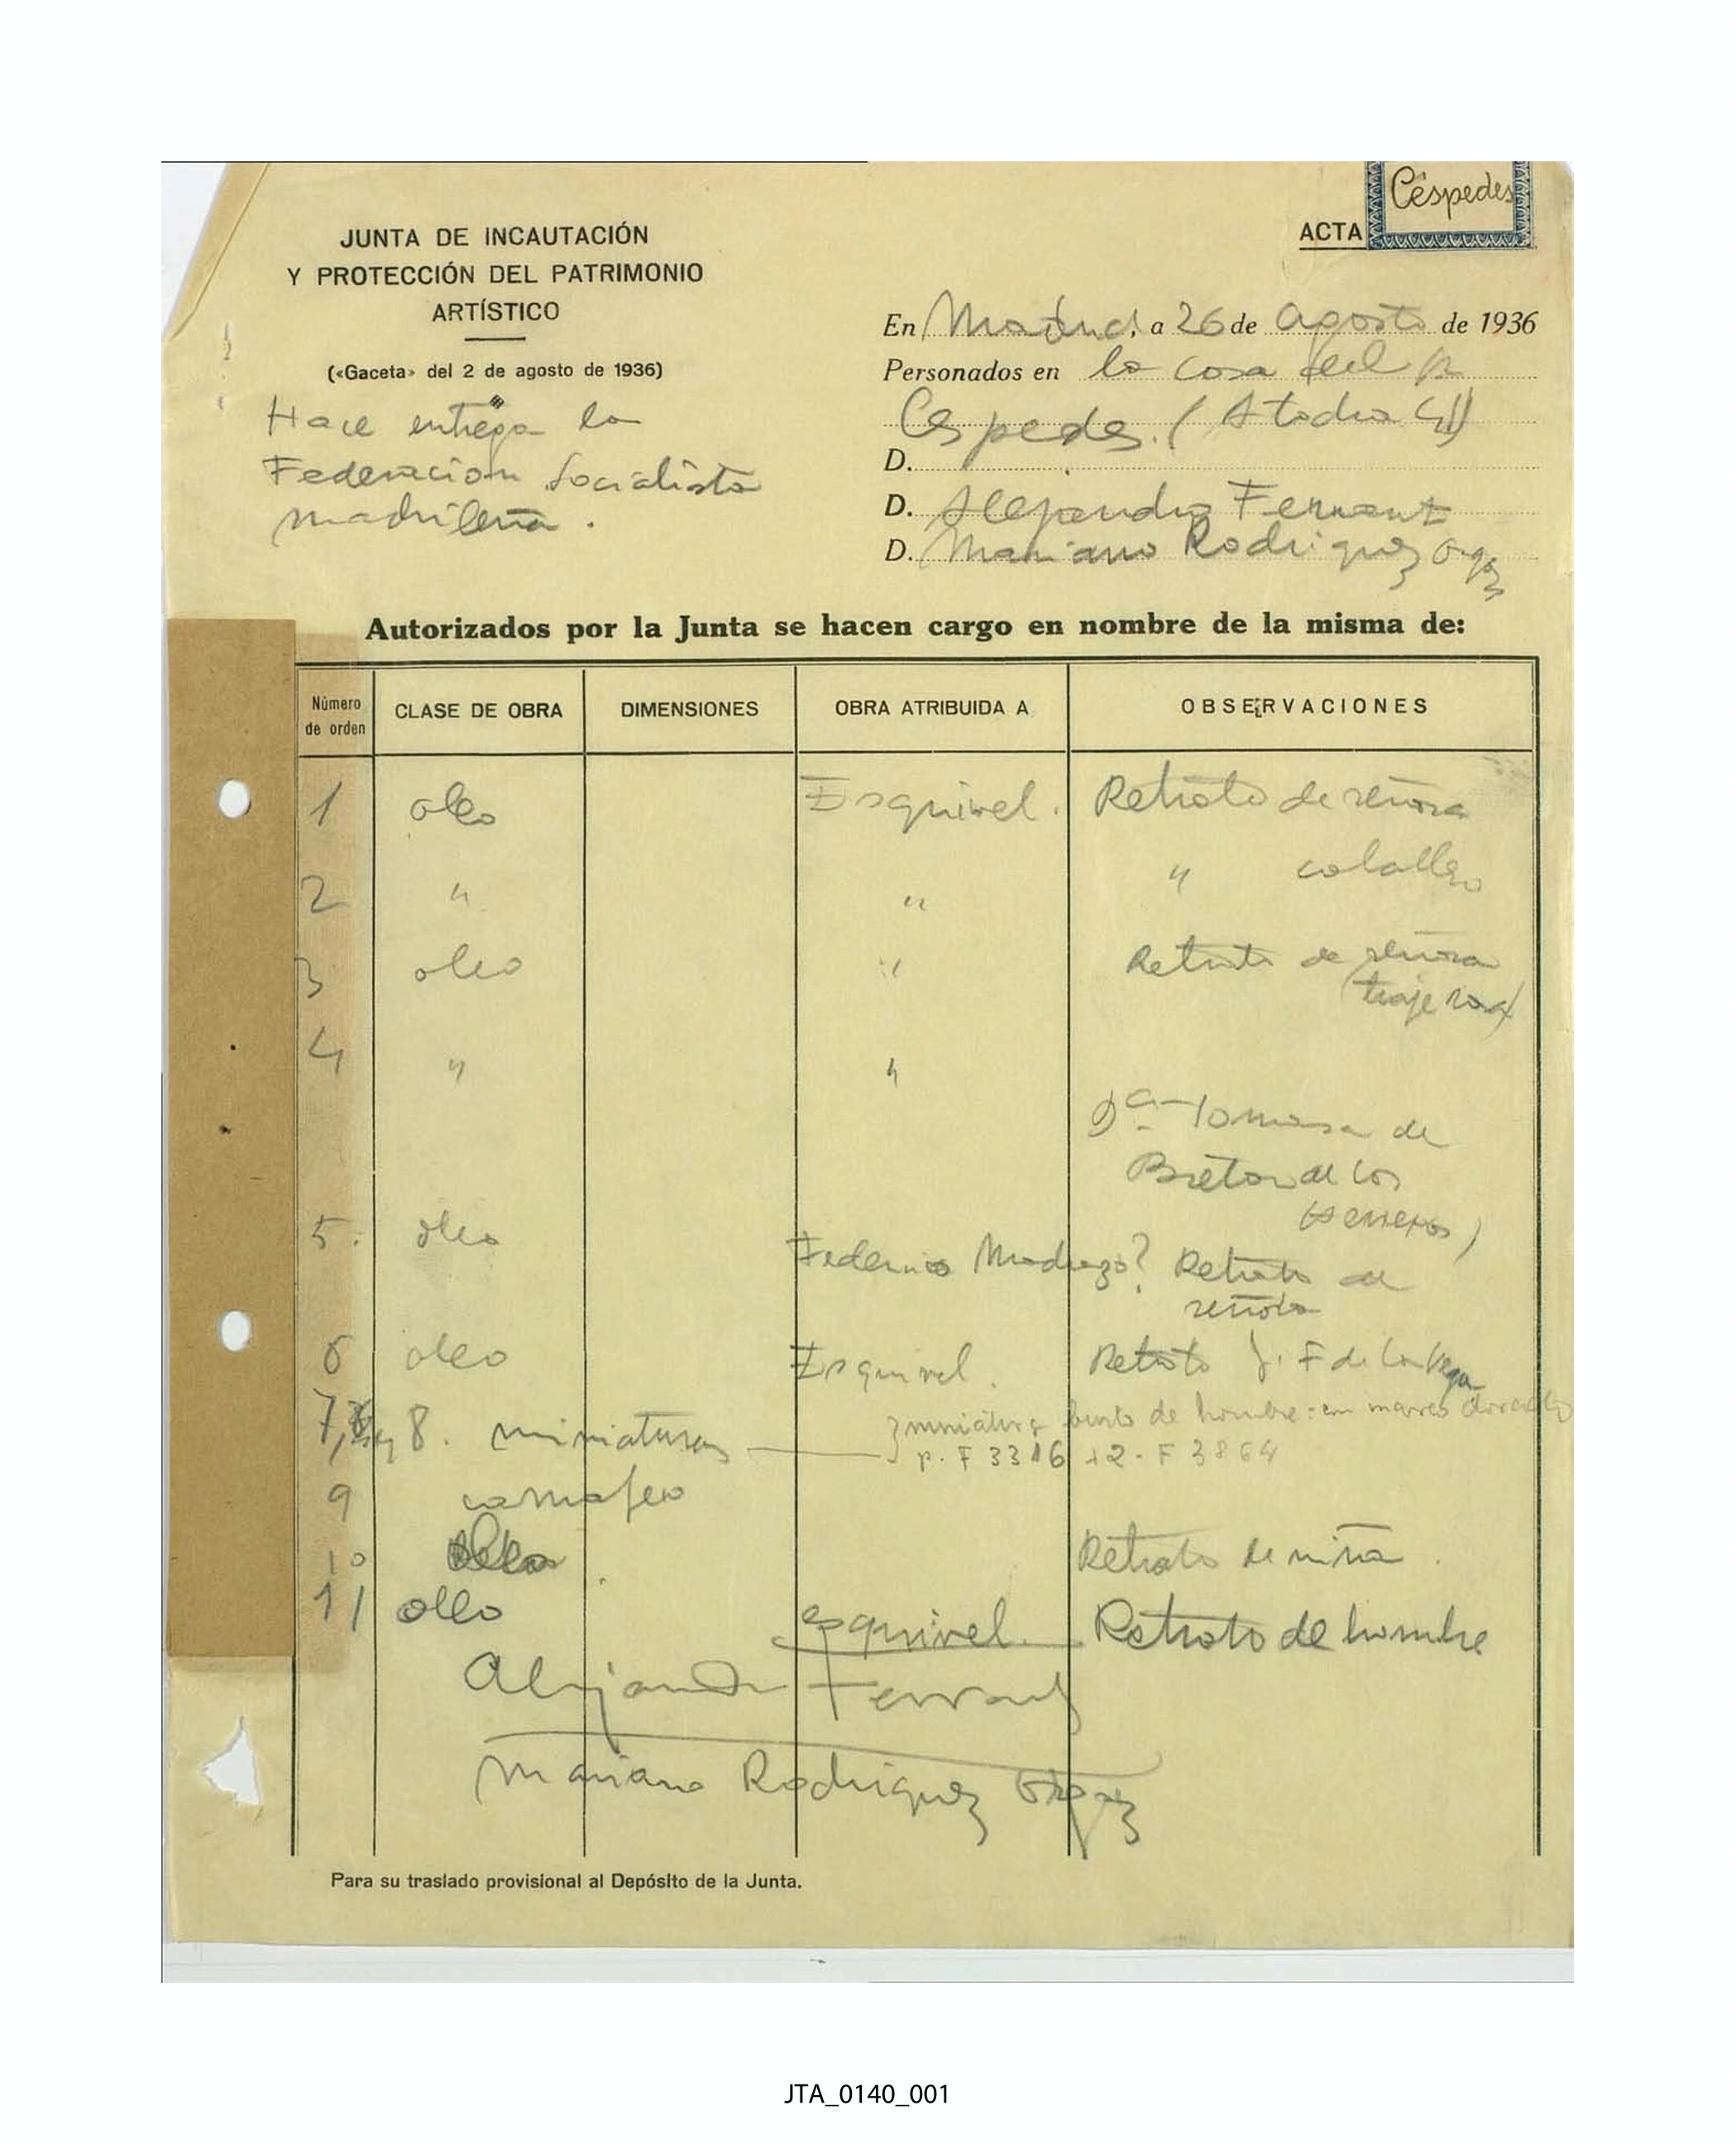 Céspedes
ACTA
JUNTA DE INCAUTACIÓN
Y PROTECCIÓN DEL PATRIMONIO
ARTÍSTICO
(«Gaceta» del 2 de agosto de 1936)
Hace entrega la
Federación Socialista
madrileña.
En Madrid, a 26 de agosto de 1936
Personados en la casa del
Cespedes. (Atocha
D.
D. Alejandro Ferrant
D. Mariano Rodriguez Orgaz
Autorizados por la Junta se hacen cargo en nombre de la misma de:
Número de orden CLASE DE OBRA DIMENSIONES OBRA ATRIBUIDA A OBSERVACIONES
1 oleo Esquivel. Retrato de señora
2 " " " caballero
3 oleo " Retrato de señora
(traje rosa)
4 " "
Dª Tomasa de
Breton de los
Herreros)
5. oleo Federico Madrazo? Retrato de
señora
6 oleo Esquivel. Retrato J. F de la Vega
7, 8. miniaturas miniatura busto de hombre: en marco dorado
p. F 3316 F 3864
9 camafeo
10 Retrato de niña.
11 oleo esquivel. Retrato de hombre
Alejandro Ferrant
Mariano Rodriguez Orgaz
Para su traslado provisional al Depósito de la Junta.
JTA_0140_001